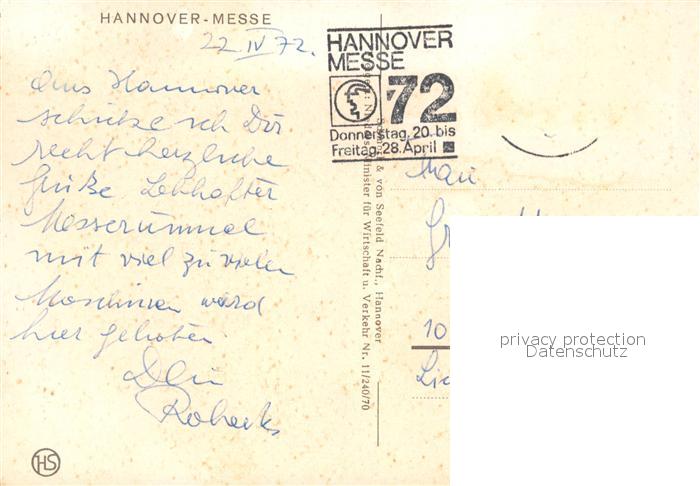 HANNOVER-MESSE
22 IV 72.
Aus Hannover
schicke ich Dir
recht herzliche
Grüße. Lebhafter
Messerummel
mit viel zu vielen
Maschinen wird
hier geboten.
Dein
HANNOVER
MESSE
72
Donnerstag, 20. bis
Freitag, 28. April
& von Seefeld Nachf., Hannover
minister für Wirtschaft u. Verkehr Nr. 11/240/70
10
privacy protection
Datenschutz
HS